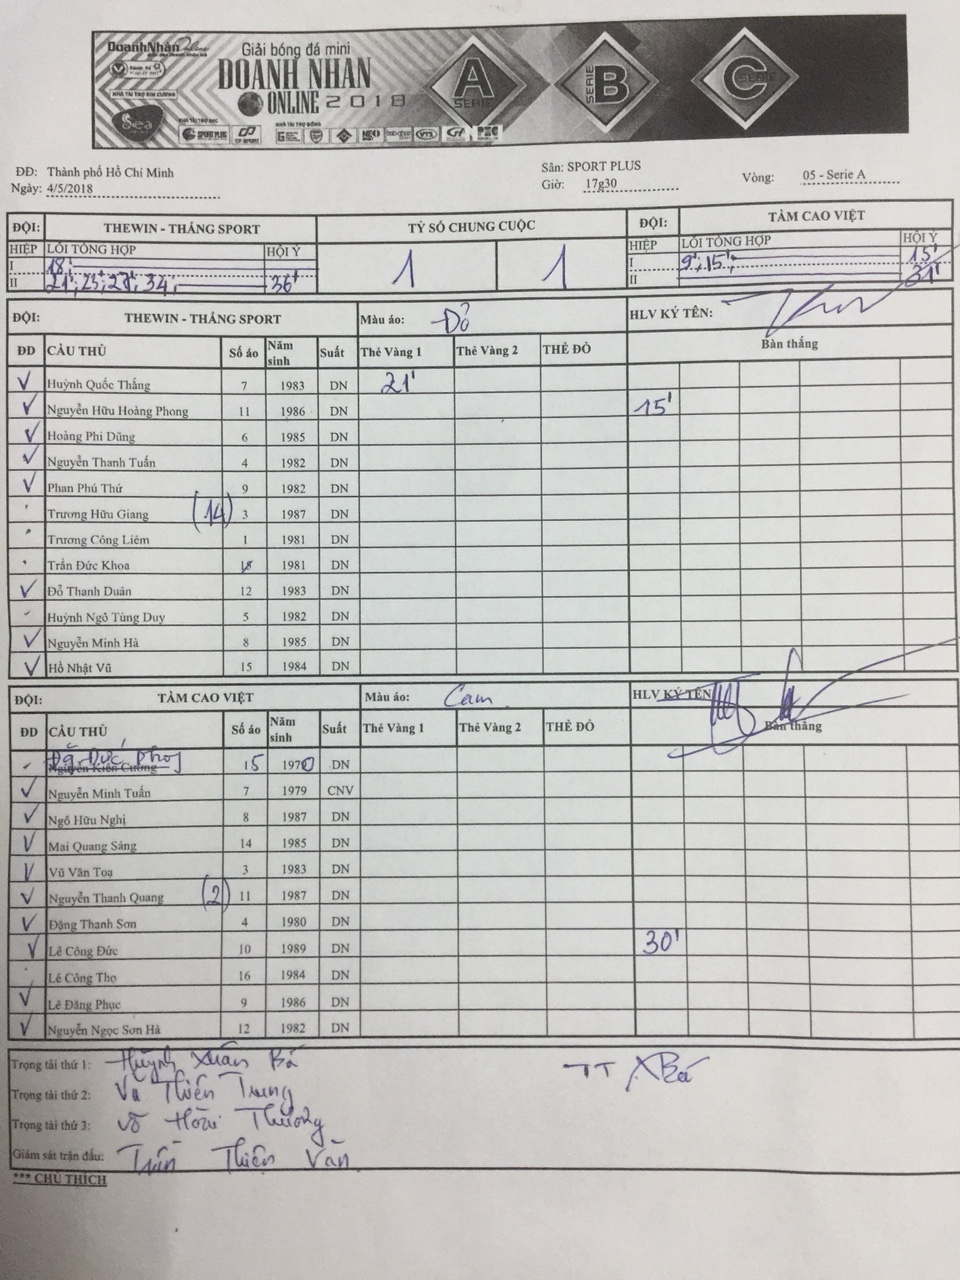 DoanhNhân
Giải bóng đá mini
DOANH NHÂN
ONLINE 2018
A SERIE
B SERIE
C SERIE
NHÀ TÀI TRỢ KIM CƯƠNG
Sea
SPORT PLUS
ĐĐ: Thành phố Hồ Chí Minh Sân: SPORT PLUS
Ngày: 4/5/2018 Giờ: 17g30 Vòng: 05 - Serie A
ĐỘI: THEWIN - THẮNG SPORT TỶ SỐ CHUNG CUỘC ĐỘI: TẦM CAO VIỆT
HIỆP LỖI TỔNG HỢP HỘI Ý 1 1 HIỆP LỖI TỔNG HỢP HỘI Ý
I 18' I 9'; 15'; 15'
II 21'; 25'; 27'; 34'; 36' II 31'
ĐỘI: THEWIN - THẮNG SPORT Màu áo: Đỏ HLV KÝ TÊN:
ĐD CẦU THỦ Số áo Năm sinh Suất Thẻ Vàng 1 Thẻ Vàng 2 THẺ ĐỎ Bàn thắng
Huỳnh Quốc Thắng 7 1983 DN 21'
Nguyễn Hữu Hoàng Phong 11 1986 DN 15'
Hoàng Phi Dũng 6 1985 DN
Nguyễn Thanh Tuấn 4 1982 DN
Phan Phú Thứ 9 1982 DN
Trương Hữu Giang (14) 3 1987 DN
Trương Công Liêm 1 1981 DN
Trần Đức Khoa 18 1981 DN
Đỗ Thanh Duẩn 12 1983 DN
Huỳnh Ngô Tùng Duy 5 1982 DN
Nguyễn Minh Hà 8 1985 DN
Hồ Nhật Vũ 15 1984 DN
ĐỘI: TẦM CAO VIỆT Màu áo: Cam HLV KÝ TÊN
ĐD CẦU THỦ Số áo Năm sinh Suất Thẻ Vàng 1 Thẻ Vàng 2 THẺ ĐỎ Bàn thắng
Nguyễn Kiên Cường 15 1970 DN
Nguyễn Minh Tuấn 7 1979 CNV
Ngô Hữu Nghị 8 1987 DN
Mai Quang Sáng 14 1985 DN
Vũ Văn Toạ 3 1983 DN
Nguyễn Thanh Quang (2) 11 1987 DN
Đặng Thanh Sơn 4 1980 DN
Lê Công Đức 10 1989 DN 30'
Lê Công Tho 16 1984 DN
Lê Đăng Phục 9 1986 DN
Nguyễn Ngọc Sơn Hà 12 1982 DN
Trọng tài thứ 1: Huỳnh Xuân Bá TT XBá
Trọng tài thứ 2: Vũ Thiên Trung
Trọng tài thứ 3: Võ Hoài Thương
Giám sát trận đấu: Trần Thiện Văn
*** CHÚ THÍCH